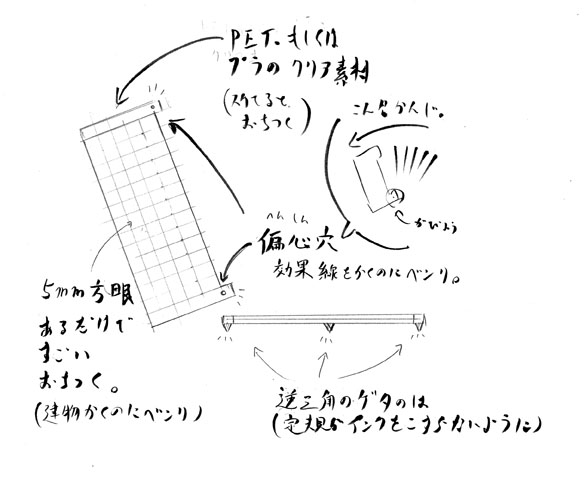 PET.もしくは
プラのクリア素材
(スケてると
おちつく)
こんなかんじ。
がびょう
へんしん
偏心穴
効果線をかくのにベンリ。
5mm方眼
あるだけで
すごい
おちつく。
(建物かくのにベンリ)
逆三角のゲタのは
(定規がインクをこすらないように)